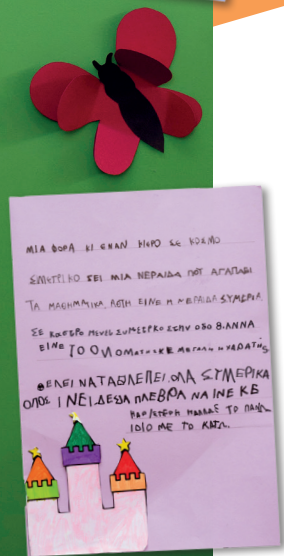 ΜΙΑ ΦΟΡΑ ΚΙ ΕΝΑΝ ΚΕΡΟ ΣΕ ΚΟΣΜΟ
ΣΙΜΕΤΡΙΚΟ ΖΕΙ ΜΙΑ ΝΕΡΑΙΔΑ ΠΟΥ ΑΓΑΠΑΕΙ
ΤΑ ΜΑΘΗΜΑΤΙΚΑ. ΑΦΤΗ ΕΙΝΕ Η ΝΕΡΑΙΔΑ ΣΥΜΕΡΙΑ
ΣΕ ΚΑΣΤΡΟ ΜΕΝΙ ΣΥΜΕΤΡΚΟ ΣΤΗΝ ΟΔΟ 8. ΑΝΝΑ
ΕΙΝΕ ΤΟ ΟΝΟΜΑ ΤΗΣ ΚΕ ΜΕΓΑΛΗ
ΘΕΛΕΙ ΝΑ ΤΑ ΒΛΕΠΕΙ ΟΛΑ ΣΥΜΕΡΙΚΑ
ΟΠΟΣ Ι ΝΕΙ ΔΕΞΙΑ ΠΛΕΒΡΑ ΝΑ ΙΝΕ ΚΕ
ΤΟ ΠΑΝΩ
ΙΔΙΟ ΜΕ ΤΟ ΚΑΤΩ.